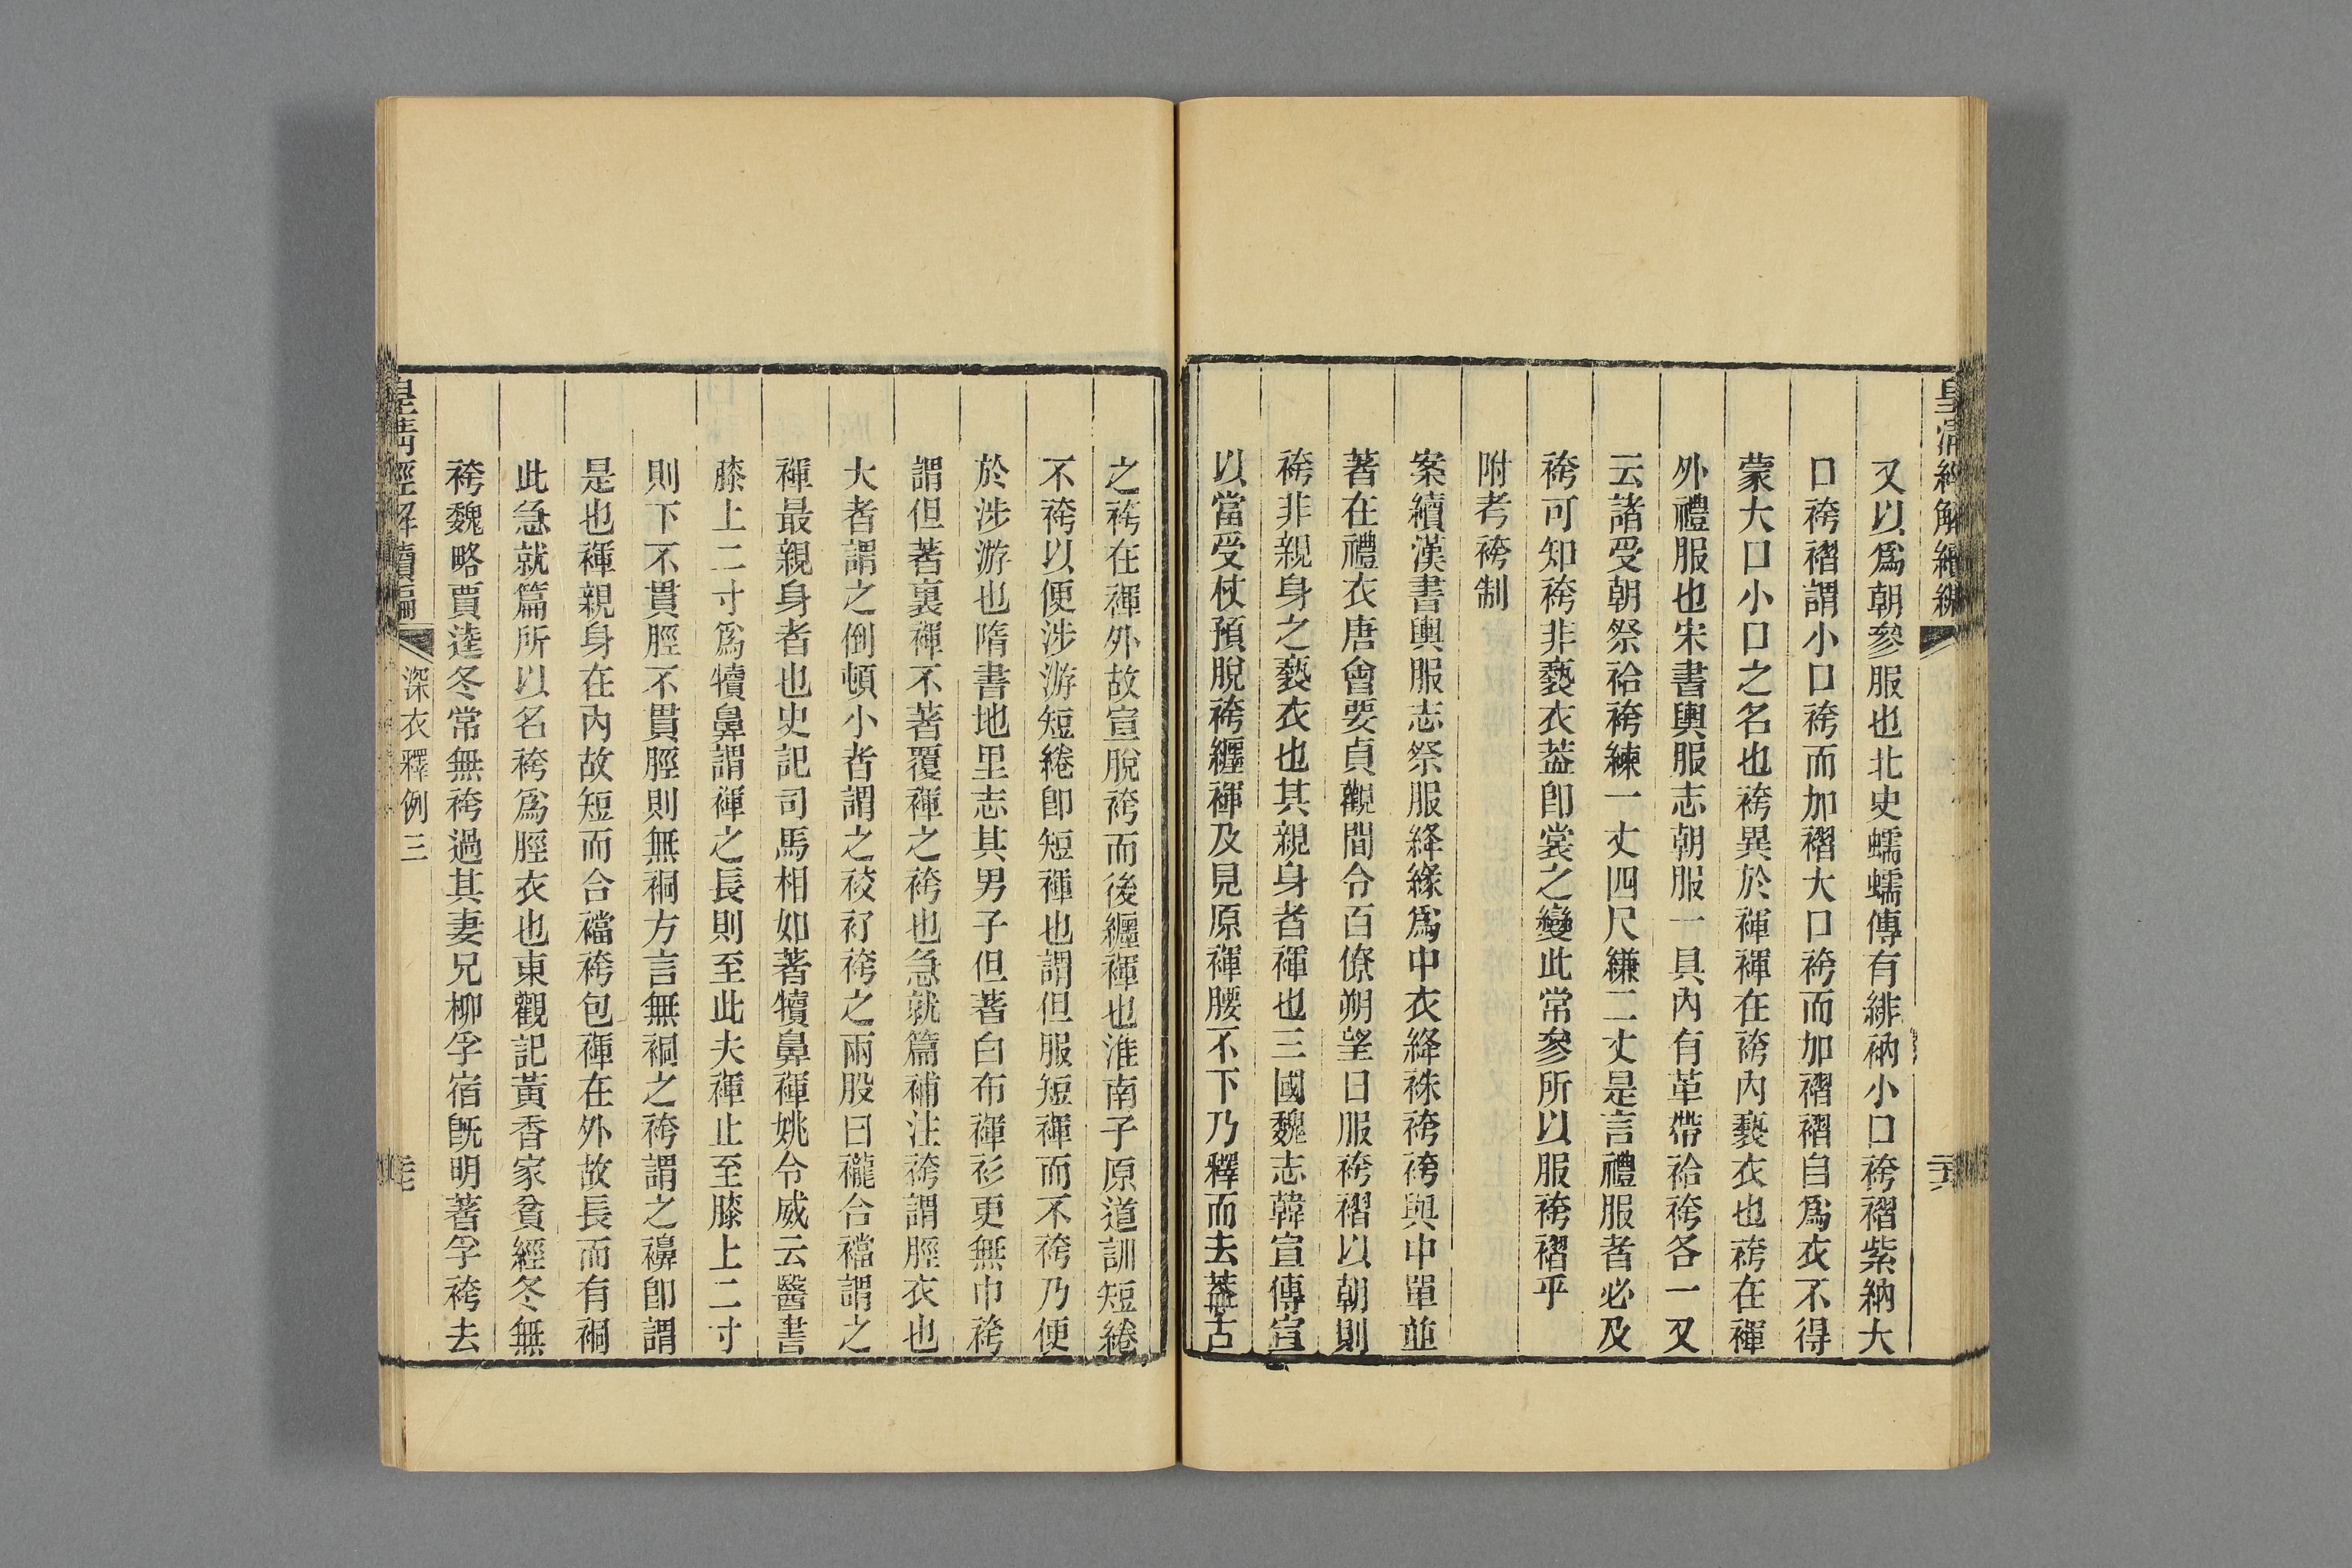 皇清經解續編
又以爲朝參服也北史蠕蠕傳有緋衲小口袴褶紫納大
口袴褶謂小口袴而加褶大口袴而加褶褶自爲衣不得
蒙大口小口之名也袴異於褌褌在袴內褻衣也袴在褌
外禮服也宋書輿服志朝服一具內有革帶袷袴各一又
云諸受朝祭袷袴練一丈四尺縑二丈是言禮服者必及
袴可知袴非褻衣葢卽裳之變此常參所以服袴褶乎
附考袴制
案續漢書輿服志祭服絳緣爲中衣絳袾袴袴與中單並
著在禮衣唐會要貞觀間令百僚朔望日服袴褶以朝則
袴非親身之褻衣也其親身者褌也三國魏志韓宣傳宣
以當受杖預脫袴纏褌及見原褌腰不下乃釋而去葢古
之袴在褌外故宣脫袴而後纏褌也淮南子原道訓短綣
不袴以便涉游短綣卽短褌也謂但服短褌而不袴乃便
於涉游也隋書地里志其男子但著白布褌衫更無巾袴
謂但著裏褌不著覆褌之袴也急就篇補注袴謂脛衣也
大者謂之倒頓小者謂之䘨衧袴之兩股曰襱合襠謂之
褌最親身者也史記司馬相如著犢鼻褌姚令威云醫書
膝上二寸爲犢鼻謂褌之長則至此夫褌止至膝上二寸
則下不貫脛不貫脛則無裥方言無裥之袴謂之襣卽謂
是也褌親身在內故短而合襠袴包褌在外故長而有裥
此急就篇所以名袴爲脛衣也東觀記黃香家貧經冬無
袴魏略賈逵冬常無袴過其妻兄柳孚宿旣明著孚袴去
皇清經解續編
深衣釋例三